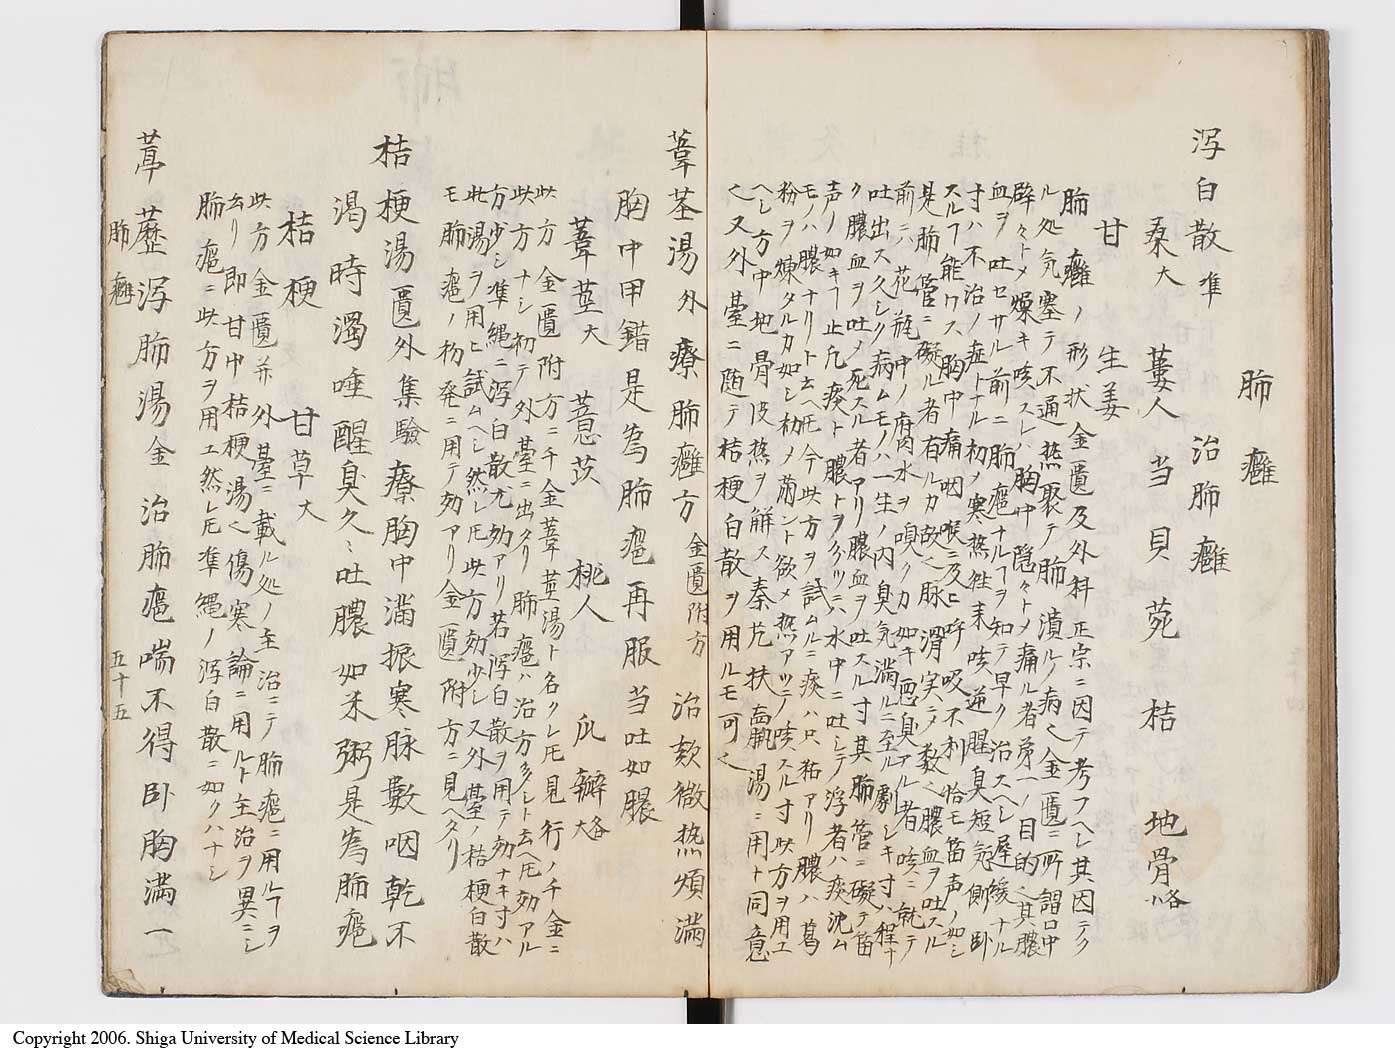 肺癰
瀉白散 準 治肺癰
桑大 蔞人 当 貝 菀 桔 地骨各
甘 生姜
肺癰ノ形状金匱及外科正宗ニ因テ考フヘシ其因テク
ル処気塞テ不通熱聚テ肺潰ルノ病也金匱ニ所謂口中
辟々トメ燥キ咳スレハ胸中隠々トメ痛ル者第一ノ目的也其膿
血ヲ吐セサル前ニ肺癰ナルヿヲ知テ早ク治スヘシ遅緩ナル
寸ハ不治ノ症トナル初メ寒熱往来咳逆腥臭短気側卧
スルヿ能ワス胸中痛咽喉ニ及ヒ呼吸不利恰モ笛声ノ如シ
是肺管ニ礙ル者有ルカ故也脉滑実ニテ数也膿血ヲ吐スル
前ニハ花瓶中ノ腐水ヲ嗅クカ如キ悪臭アル者咳ニ就テ
吐出ス久シク病ムモノハ一生ノ内臭気満ルニ至ル劇シキ寸ハ程ナ
ク膿血ヲ吐メ死スル者アリ膿血ヲ吐スル寸其肺管ニ礙テ笛
声ノ如キヿ止凡痰ト膿トヲ分ツニハ水中ニ吐シテ浮者ハ痰沈ム
モノハ膿ナリト云ヘ圧今此方ヲ試ムルニ痰ハ只粘アリ膿ハ葛
粉ヲ煉タルカ如シ初メ萠ント欲メ熱アツテ咳スル寸此方ヲ用エ
ヘシ方中地骨皮熱ヲ解ス秦艽扶羸湯ニ用ト同意
也又外臺ニ随テ桔梗白散ヲ用ルモ可也
葦茎湯 外 療肺癰方 金匱附方 治欬微熱煩満
胸中甲錯是為肺癰再服当吐如膿
葦茎大 薏苡 桃人 瓜瓣各大
此方金匱附方ニ千金葦茎湯ト名クレ圧見行ノ千金ニ
此方ナシ初テ外臺ニ出タリ肺癰ハ治方多シト云ヘ圧効アル
方少シ準縄ニ瀉白散尤効アリ若瀉白散ヲ用テ効ナキ寸ハ
此湯ヲ用ヒ試ムヘシ然レ圧此方効少シ又外臺ノ桔梗白散
モ肺癰ノ初発ニ用テ効アリ金匱附方ニ見ヘタリ
桔梗湯 匱 外 集驗療胸中滿振寒脉數咽乾不
渇時濁唾醒臭久々吐膿如米粥是為肺癰
桔梗 甘草大
此方金匱并外臺ニ載ル処ノ主治ニテ肺癰ニ用ルヿヲ
云リ即甘中桔梗湯也傷寒論ニ用ルト主治ヲ異ニシ
肺癰ニ此方ヲ用エ然レ圧準縄ノ瀉白散ニ如クハナシ
葶藶瀉肺湯 金 治肺癰喘不得卧胸満一
肺癰 五十五
Copyright 2006. Shiga University of Medical Science Library